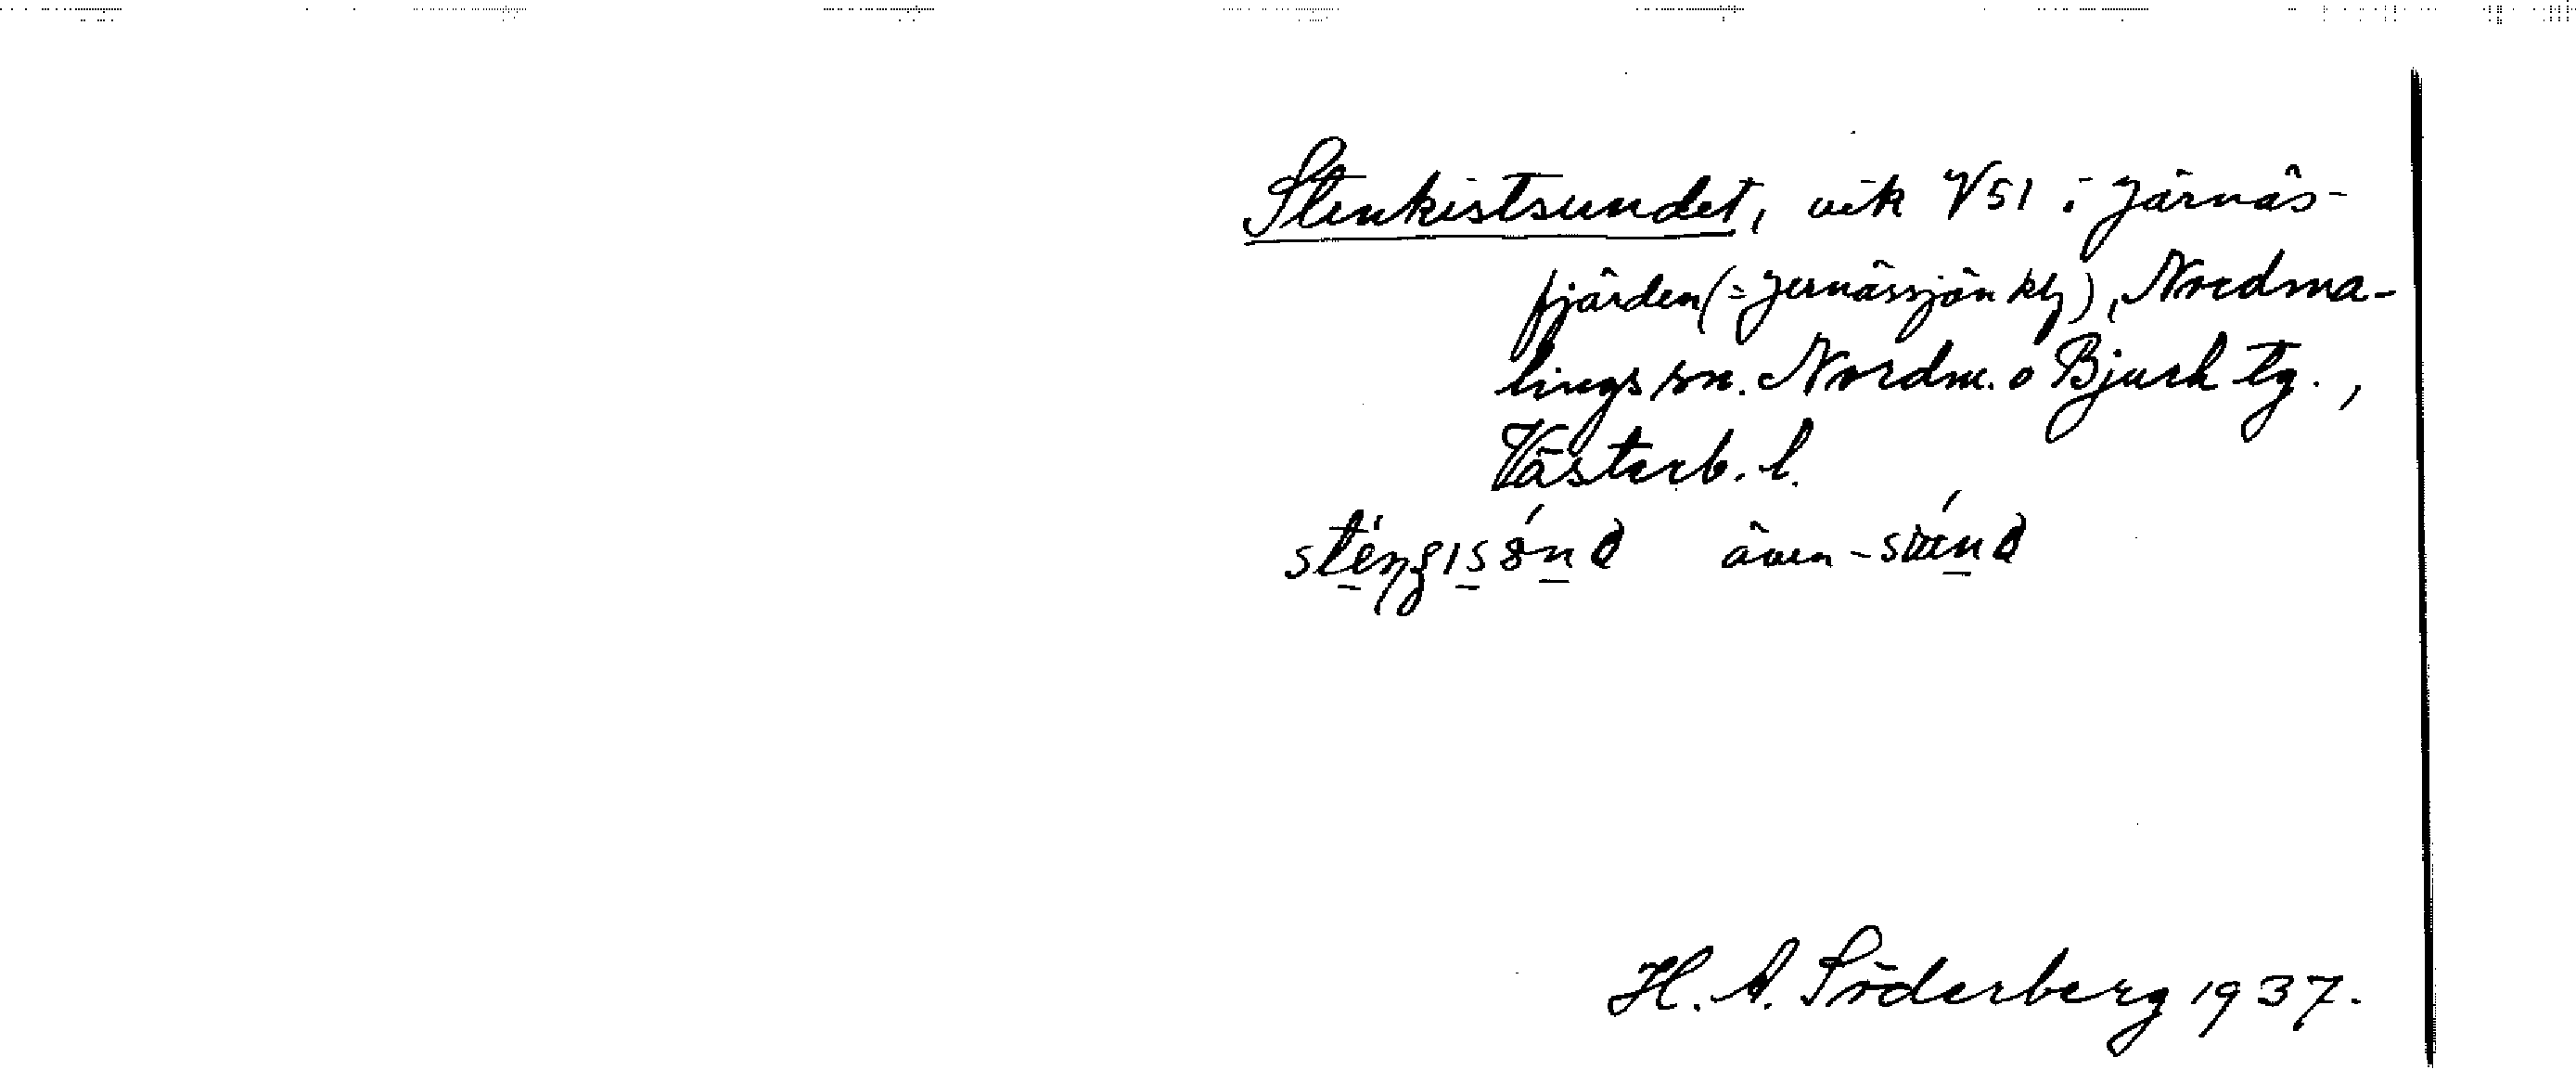 Stenkistsundet, vik V51 i Järnäs-
fjärden (= Jernässjön kb), Nordma-
lings sn. Nordm. o Bjurh tg.,
Västerb. l.
även
H. A. Söderberg 1937.